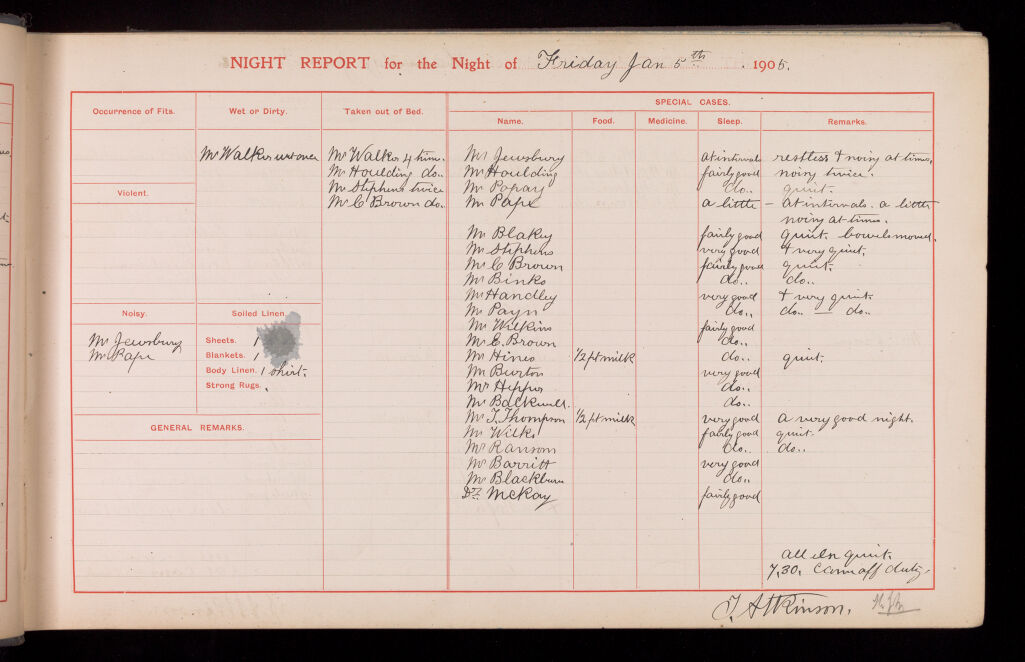 NIGHT REPORT for the Night of Friday Jan 5th 1905.
Occurrence of Fits.
Wet or Dirty.
Taken out of Bed.
SPECIAL CASES.
Name. Food. Medicine. Sleep. Remarks.
Mr Walker wet once
Mr Walker 4 times.
Mr Houlding do..
Mr Stephens twice
Mr C Brown do..
Violent.
Noisy.
Mr Jewsbury
Mr Pape
Soiled Linen.
Sheets. 1
Blankets. 1
Body Linen. 1 shirt.
Strong Rugs.
GENERAL REMARKS.
Mr Jewsbury at intervals restless & noisy at times.
Mr Houlding fairly good noisy twice.
Mr Popay do.. quiet.
Mr Pape a little – at intervals. a little
noisy at times.
Mr Blakey fairly good quiet. bowels moved.
Mr Stephens very good & very quiet.
Mr C Brown fairly good quiet.
Mr Binks do.. do..
Mr Handley very good & very quiet.
Mr Payn do.. do.. — do..
Mr Wilkins fairly good
Mr E. Brown do..
Mr Hines 1/2 pt milk do.. quiet.
Mr Burton very good
Mr Hepper do..
Mr Backwell. do..
Mr T. Thompson 1/2 pt milk very good a very good night.
Mr Wilks fairly good quiet.
Mr Ranson do.. do..
Mr Barritt very good
Mr Blackburn do..
Dr. McKay fairly good
all in quiet.
7.30. came off duty.
T. Atkinson.